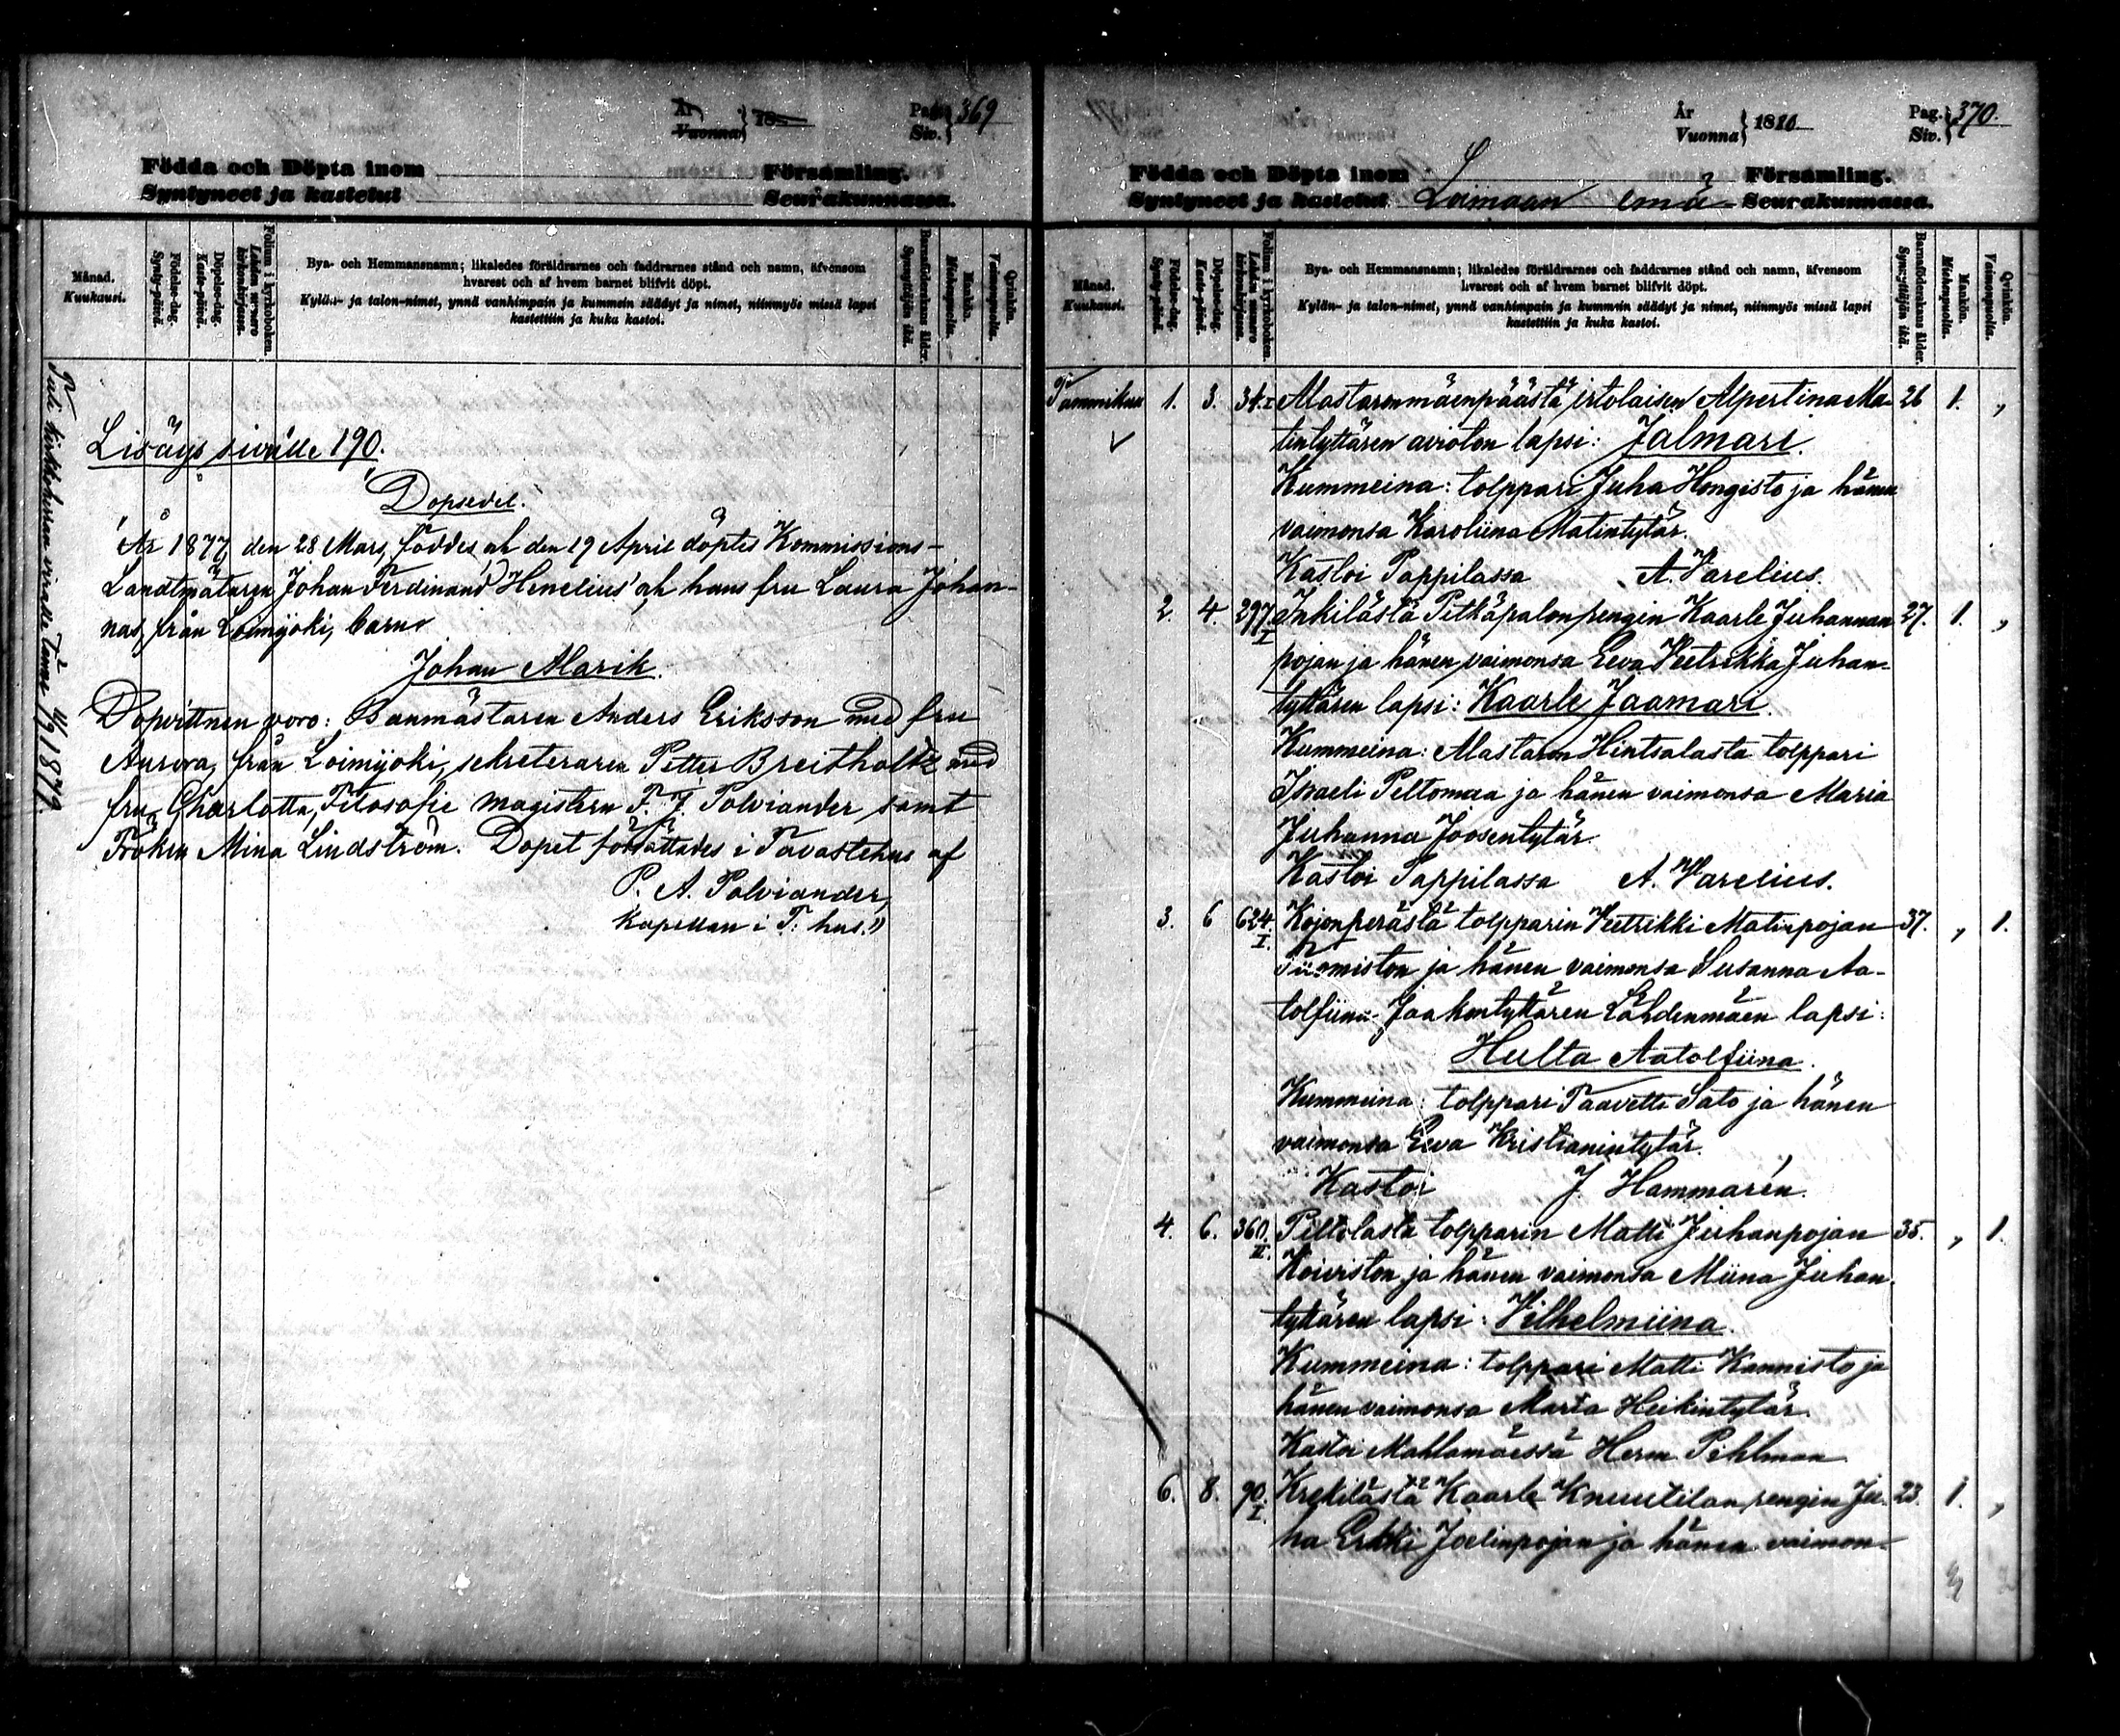 År
Vuonna } 18
Pag.
Siv. } 369
Födda och Döpta inom Församling.
Syntyneet ja kastetut Seurakunnassa.
Månad.
Kuukausi.
Födelse-dag.
Synty-päivä.
Döpelse-dag.
Kaste-päivä.
Folium i kyrkoboken.
Lehden numero kirkonkirjassa.
Bya- och Hemmansnamn; likaledes föräldrarnes och faddrarnes stånd och namn, äfvensom
hvarest och af hvem barnet blifvit döpt.
Kylän- ja talon-nimet, ynnä vanhimpain ja kummein säädyt ja nimet, niinmyös missä lapsi
kastettiin ja kuka kastoi.
Barnaföderskans ålder.
Synnyttäjän ikä.
Mankön.
Miehenpuolta.
Qvinkön.
Vaimonpuolta.
Tuli kirkkoherran virialle tämä 4/9 1879.
Lisäys sivulle 190.
Dopsedel.
År 1877 den 28 Mars, föddes och den 19 April döptes Kommissions-
Landtmätaren Johan Ferdinand Henelius och hans fru Laura Johan-
nas, från Loimijoki, barn
Johan Alarik.
Dopvittnen voro: Banmästaren Anders Eriksson med fru
Aurora, från Loimijoki, sekreteraren Petter Breitholtz med
fru Charlotta, Filosofie magistern F. J. Polviander samt
Fröken Mina Lindström. Dopet förrättades i Tavastehus af
P. A. Polviander,
Kapellan i T: hus."
År
Vuonna } 1880
Pag.
Siv. } 370.
Födda och Döpta inom Församling.
Syntyneet ja kastetut Loimaan emä- Seurakunnassa.
Månad.
Kuukausi.
Födelse-dag.
Synty-päivä.
Döpelse-dag.
Kaste-päivä.
Folium i kyrkoboken.
Lehden numero kirkonkirjassa.
Bya- och Hemmansnamn; likaledes föräldrarnes och faddrarnes stånd och namn, äfvensom
hvarest och af hvem barnet blifvit döpt.
Kylän- ja talon-nimet, ynnä vanhimpain ja kummein säädyt ja nimet, niinmyös missä lapsi
kastettiin ja kuka kastoi.
Barnaföderskans ålder.
Synnyttäjän ikä.
Mankön.
Miehenpuolta.
Qvinkön.
Vaimonpuolta.
Tammikuu 1. 3. Mastarenmäenpäästä irtolaisen Alpertina Ma- 26 1. "
tintyttären avioton lapsi: Jalmari.
Kummeina: tolppari Juha Hongisto ja hänen
vaimonsa Karoliina Matintytär.
Kastoi Pappilassa A. Varelius.
2. 4. 297 I Inkilästä Pitkäpalon rengin Kaarle Juhannan 27. 1. "
pojan ja hänen vaimonsa Eeva Veetrikka Juhan-
tyttären lapsi: Kaarle Jaamari.
Kummeina: Mastaron Hintsalasta tolppari
Israeli Peltomaa ja hänen vaimonsa Maria
Juhanna Joosentytär.
Kastoi Pappilassa A. Varelius.
3. 6 624. I. Kojonperästä tolpparin Veetrikki Matinpojan 37. " 1.
ja hänen vaimonsa Susanna Aa-
tolfiina Jaakontyttären Lähdenmäen lapsi:
Hulta Aatolfiina.
Kummeina: tolppari Taavetti Sato ja hänen
vaimonsa Eeva Kristianintytär.
Kastoi J. Hammarén.
4. 6. 360. II. Peltolasta tolpparin Matti Juhanpojan 35. " 1.
Koiviston ja hänen vaimonsa Miina Juhan-
tyttären lapsi: Vilhelmiina.
Kummeina: tolppari Matti Kannisto ja
hänen vaimonsa Maria Heikintytär.
Kastoi Mahlamäessä Herm. Pihlman
6. 8. 90. I. Krekilästä Kaarle Knuutilan rengin Ju- 23. 1. "
ha Erkki Joelinpojan ja hänen vaimon-